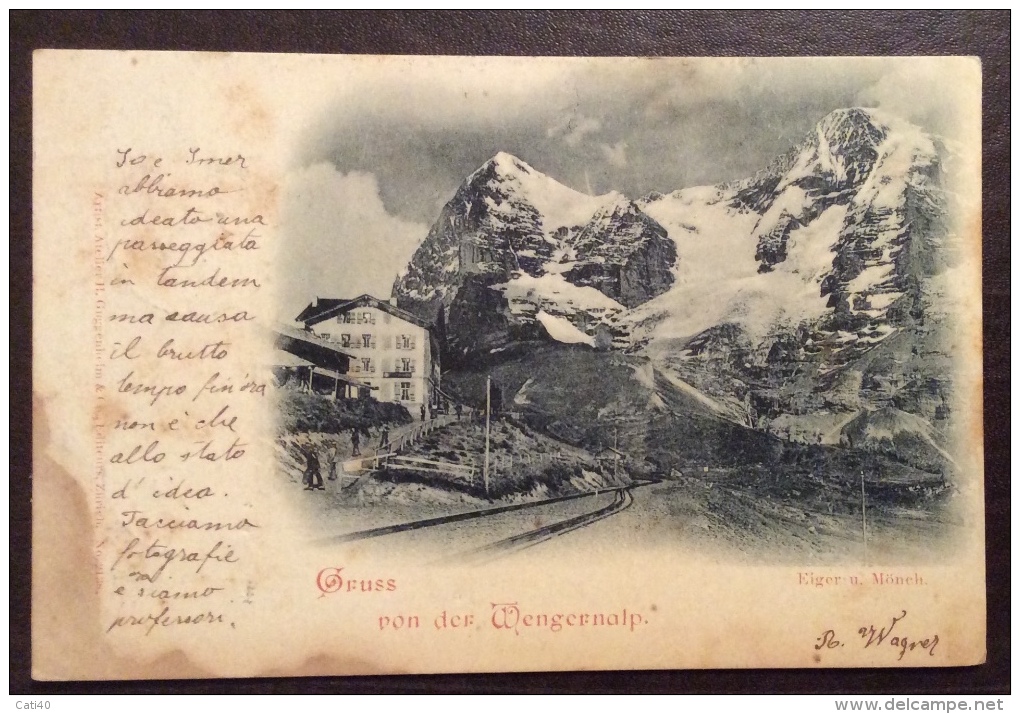 Io e Imer
abbiamo
ideato una
passeggiata
in tandem
ma causa
il brutto
tempo fin'ora
non è che
allo stato
d'idea.
Facciamo
fotografie
e siamo
professori.
Gruss
von der Wengernalp.
Eiger u. Mönch.
R. Wagner
Cati40
delcampe.net